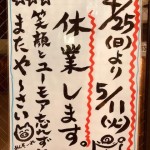 4/25(日)より
5/11(火)
休業します。
笑顔とユーモア忘れず
またやーさい